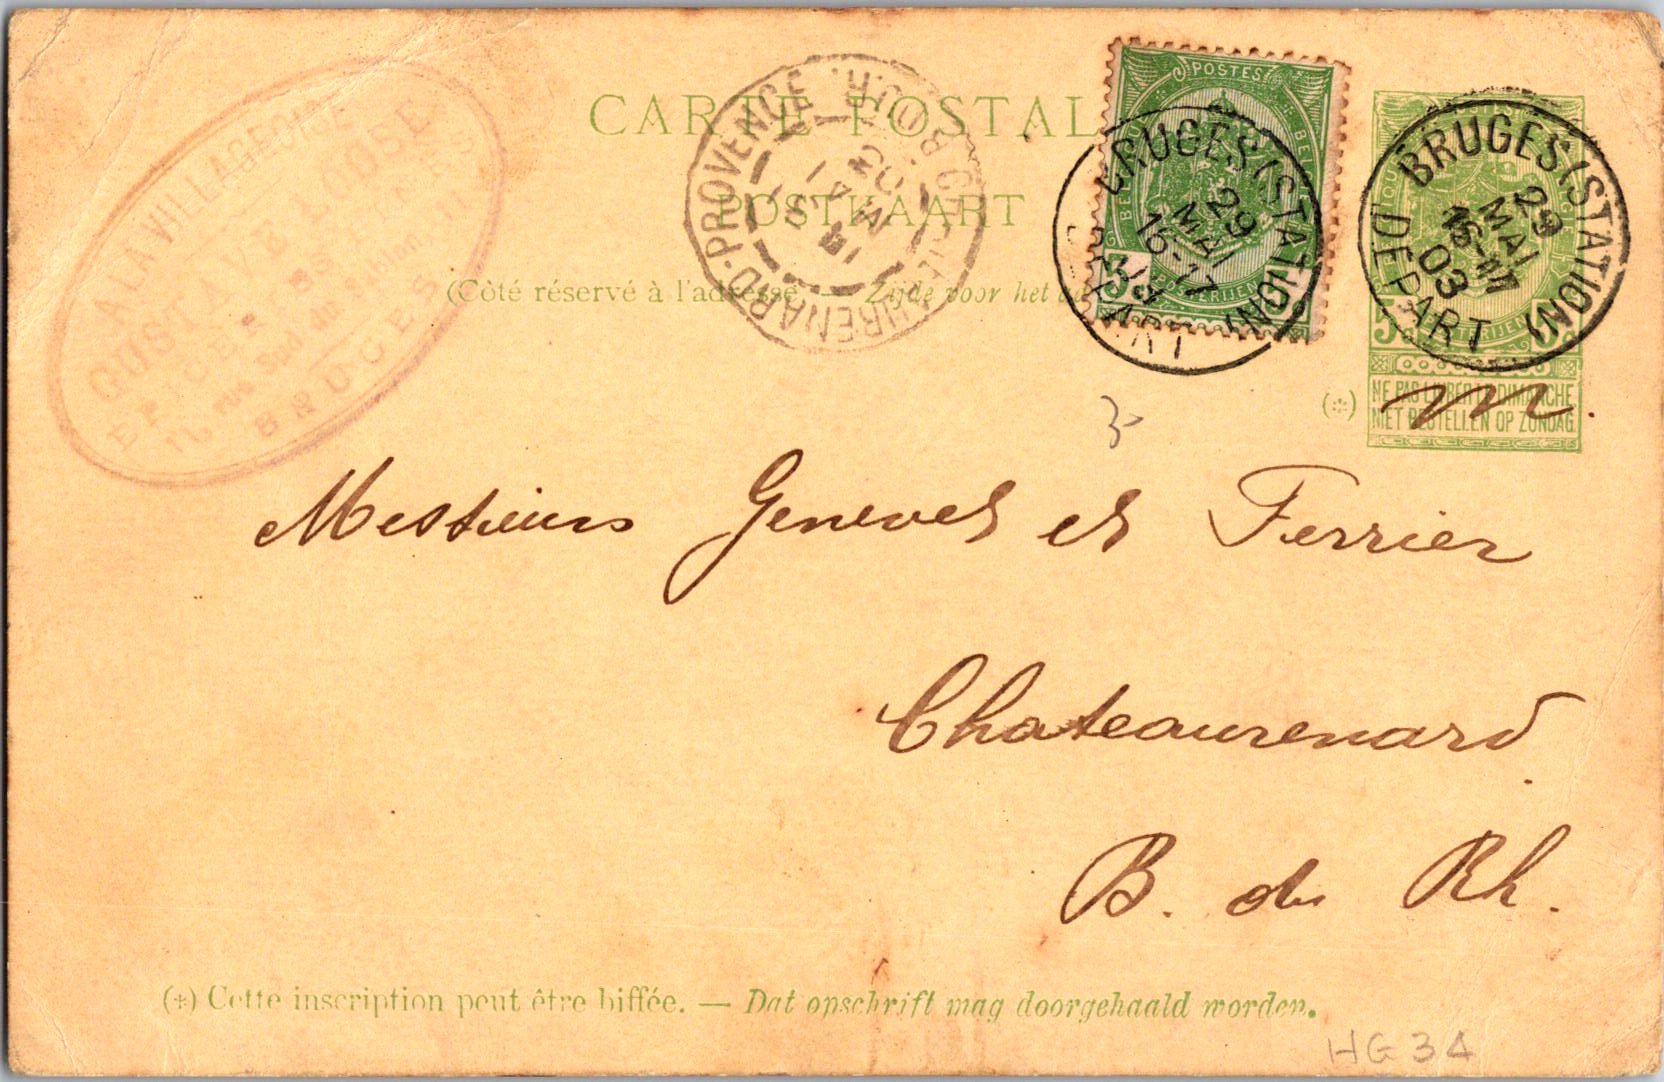 CARTE POSTALE
POSTKAART
(Côté réservé à l'adresse. — Zijde voor het
A LA VILLAGEOISE
GUSTAVE LOOSE
rue Sud du Sablon, 11
BRUGES
CHATEAURENARD-PROVENCE
BCHES DU RH.
31
MAI
03
POSTES
5
BRUGES (STATION)
29
MAI
16-17
03
DEPART
BRUGES (STATION)
29
MAI
03
DEPART
5
NE PAS LIVRER LE DIMANCHE
NIET BESTELLEN OP ZONDAG
(*)
Messieurs Genevet et Ferrier
Chateaurenard
B. du Rh.
(*) Cette inscription peut être biffée. — Dat opschrift mag doorgehaald worden.
HG 34